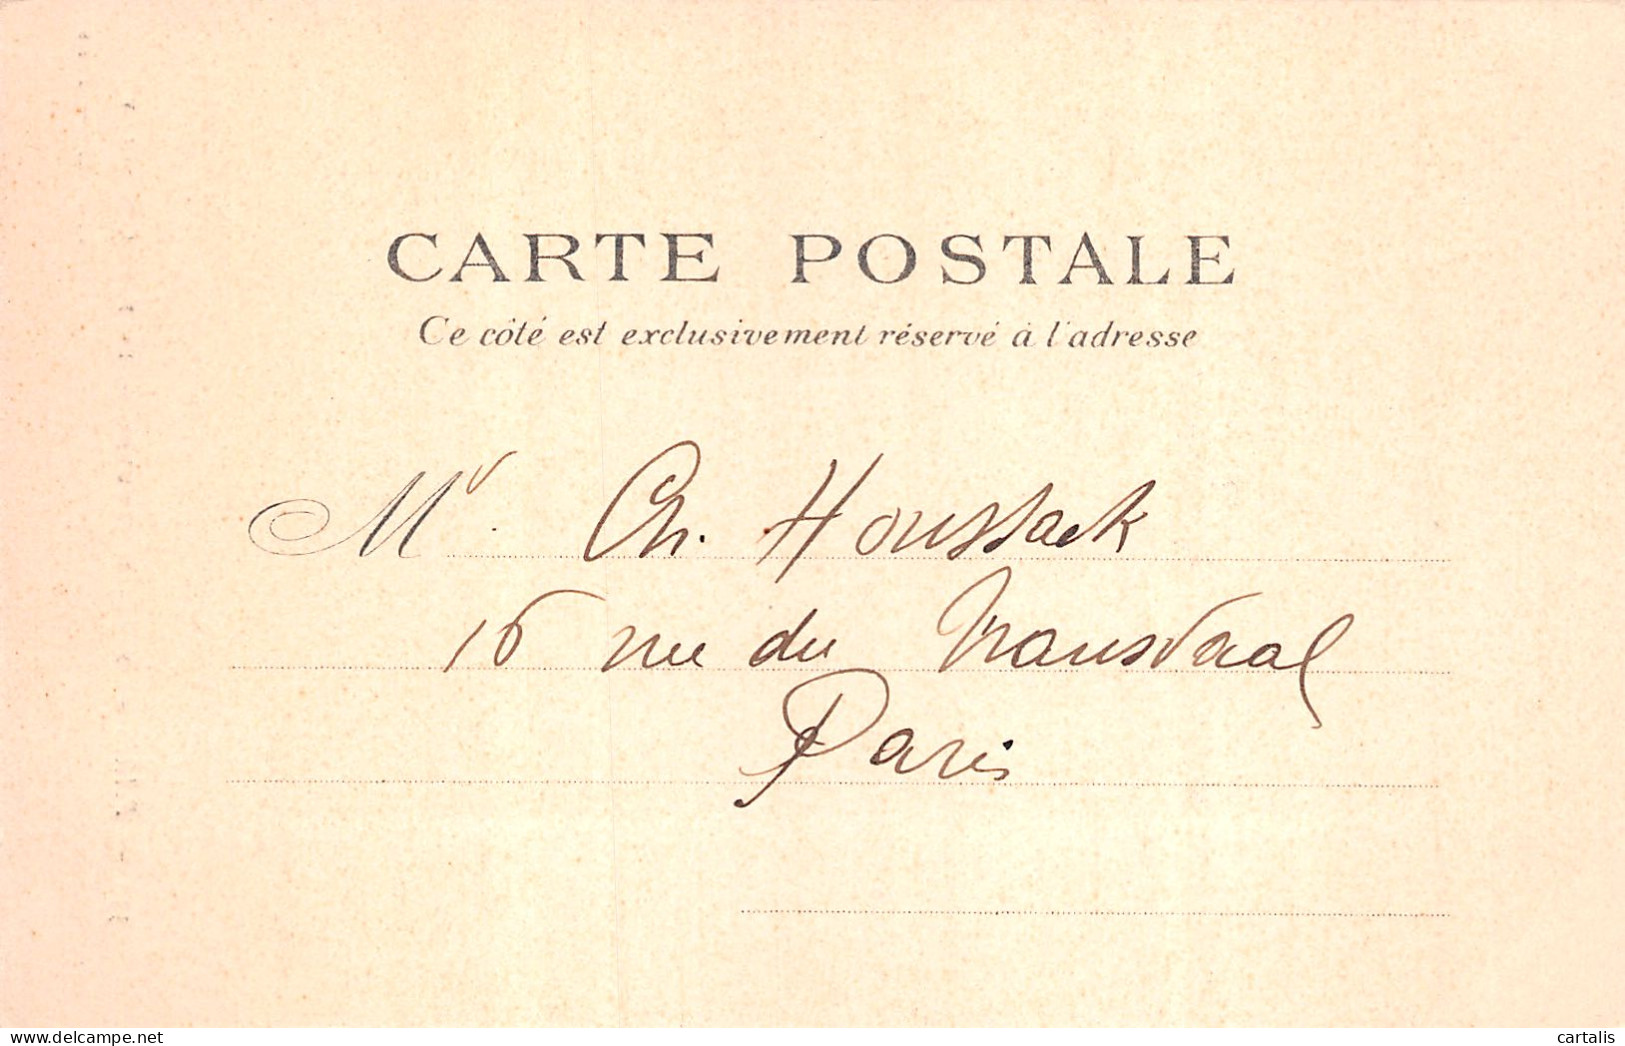 CARTE POSTALE
Ce côté est exclusivement réservé à l'adresse
Mr. Ch. Houssack
16 rue du Transvaal
Paris
delcampe.net
cartalis